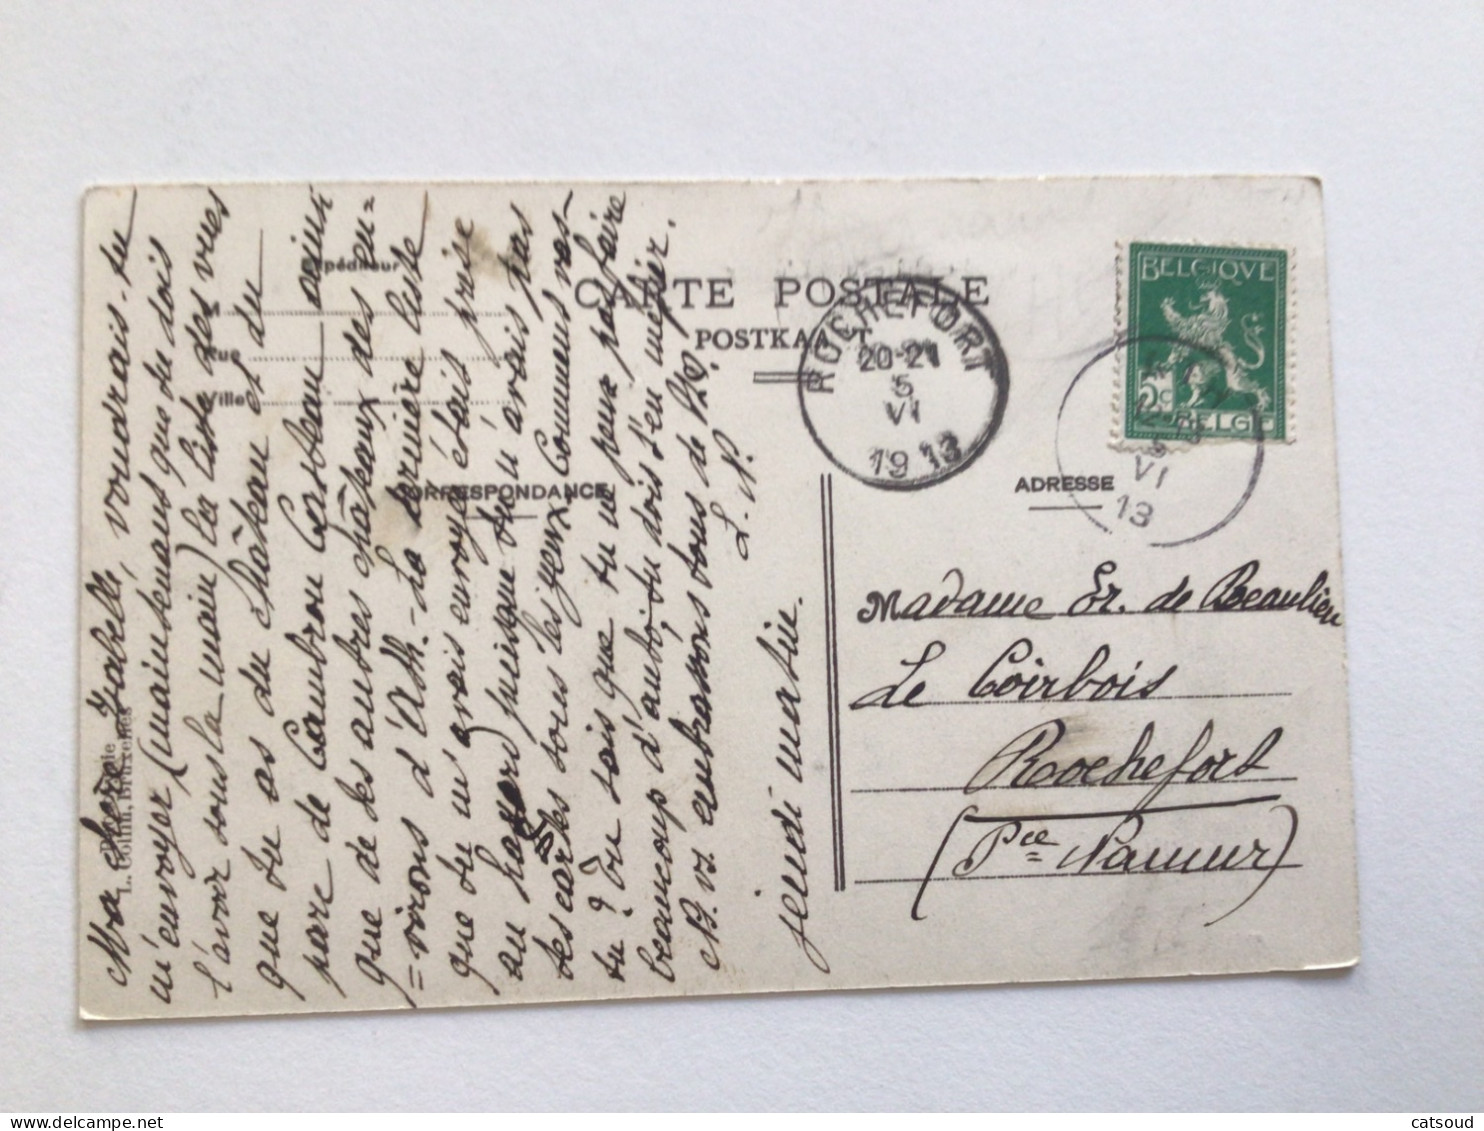 Ma chère Isabelle, voudrais-tu
m'envoyer (maintenant que tu dois
l'avoir sous la main) la liste des vues
que tu as du Château et du
parc de Cambron Casteau ainsi
que de les autres châteaux des en=
=virons d'Ath. - La dernière liste
que tu m'avais envoyée était prise
au hasard puisque tu n'avais pas
tes cartes sous les yeux. Comment vas-
tu? Tu sais que tu ne peux pas faire
beaucoup d'auto, tu dois t'en méfier.
N. vs embrassons tous de
L. N.
jeudi matin.
Expéditeur
M
Rue
Ville
CORRESPONDANCE
L. Collin, Bruxelles
CARTE POSTALE
POSTKAART
ROCHEFORT
20-21
5
VI
1913
BELGIQUE
5c
BELGIË
5
VI
13
ADRESSE
Madame Er. de Beaulieu
Le Coirbois
Rochefort
(Pce Namur)
catsoud